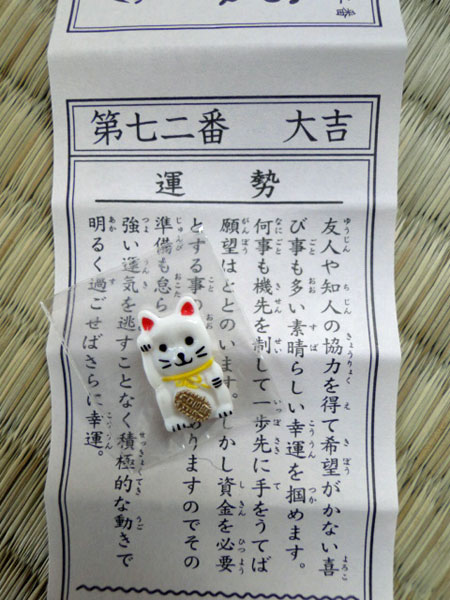 番
第七二番 大吉
運勢
友人や知人の協力を得て希望がかない喜
び事も多い素晴らしい幸運を掴めます。
何事も機先を制して一歩先に手をうてば
願望はととのいます。しかし資金を必要
とする事の りますのでその
準備も怠ら
強い運気を逃すことなく積極的な動きで
明るく過ごせばさらに幸運。